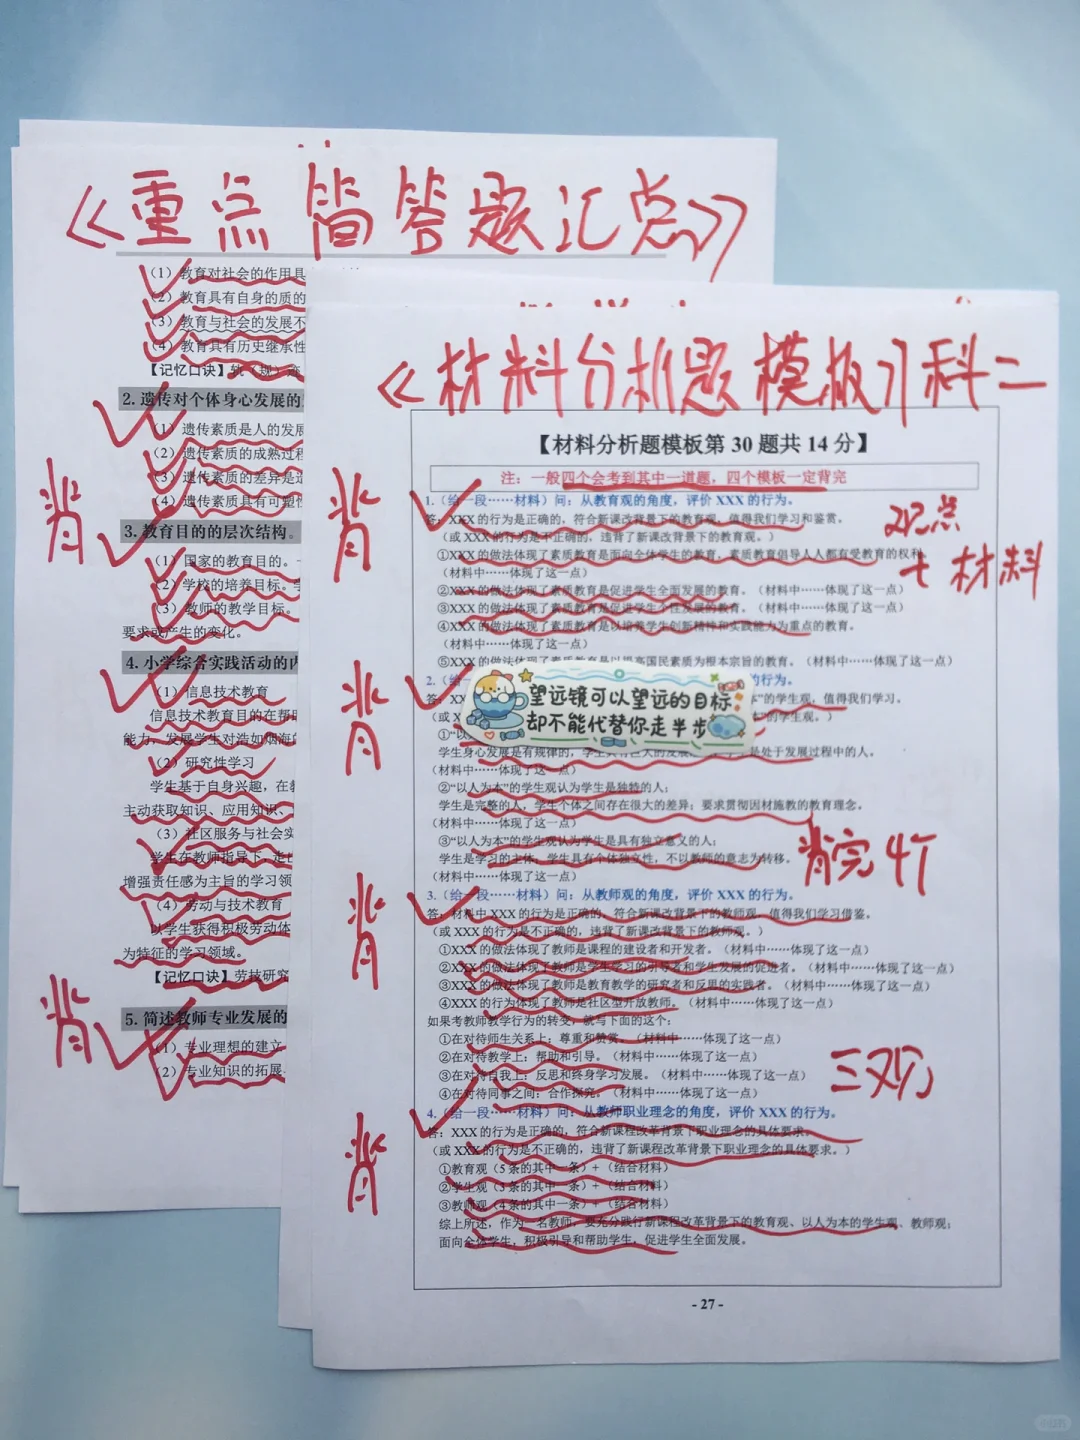 《重点简答题汇点》
(1)教育对社会的作用具
(2)教育具有自身的质的
(3)教育与社会的发展不
(4)教育具有历史继承性
【记忆口诀】
2.遗传对个体身心发展的
(1)遗传素质是人的发展
(2)遗传素质的成熟过程
(3)遗传素质的差异是
(4)遗传素质具有可塑性
背
3.教育目的的层次结构。
(1)国家的教育目的。
(2)学校的培养目标。
(3)教师的教学目标。
要求或产生的变化。
4.小学综合实践活动的内
(1)信息技术教育
信息技术教育目的在帮助
能力、发展学生对浩如烟海的
(2)研究性学习
学生基于自身兴趣,在教
主动获取知识、应用知识、
(3)社区服务与社会实
学生在教师指导下,走出
增强责任感为主旨的学习领
(4)劳动与技术教育
以学生获得积极劳动体
为特征的学习领域。
【记忆口诀】劳技研究
背
5.简述教师专业发展的
(1)专业理想的建立
(2)专业知识的拓展
《材料分析题模板》科二
【材料分析题模板第 30 题共 14 分】
注:一般四个会考到其中一道题,四个模板一定背完
背
1.(给一段……材料)问:从教育观的角度,评价 XXX 的行为。
答:XXX 的行为是正确的,符合新课改背景下的教育观,值得我们学习和鉴赏。
(或 XXX 的行为是不正确的,违背了新课改背景下的教育观。)
①XXX 的做法体现了素质教育是面向全体学生的教育,素质教育倡导人人都有受教育的权利
(材料中……体现了这一点)
②XXX 的做法体现了素质教育是促进学生全面发展的教育。(材料中……体现了这一点)
③XXX 的做法体现了素质教育是促进学生个性发展的教育。(材料中……体现了这一点)
④XXX 的做法体现了素质教育是以培养学生创新精神和实践能力为重点的教育。
(材料中……体现了这一点)
⑤XXX 的做法体现了素质教育是以提高国民素质为根本宗旨的教育。(材料中……体现了这一点)
观点
+材料
背
2.(给
评价 XXX 的行为。
望远镜可以望远的目标
却不能代替你走半步
本”的学生观,值得我们学习。
本”的学生观。)
学生身心发展是有规律的,学生具有巨大的发展
是处于发展过程中的人。
(材料中……体现了这一点)
②“以人为本”的学生观认为学生是独特的人;
学生是完整的人,学生个体之间存在很大的差异;要求贯彻因材施教的教育理念。
(材料中……体现了这一点)
③“以人为本”的学生观认为学生是具有独立意义的人;
学生是学习的主体,学生具有个体独立性,不以教师的意志为转移。
(材料中……体现了这一点)
背完4个
背
3.(给一段……材料)问:从教师观的角度,评价 XXX 的行为。
答:材料中 XXX 的行为是正确的,符合新课改背景下的教师观,值得我们学习借鉴。
(或 XXX 的行为是不正确的,违背了新课改背景下的教师观。)
①XXX 的做法体现了教师是课程的建设者和开发者。(材料中……体现了这一点)
②XXX 的做法体现了教师是学生学习的引导者和学生发展的促进者。(材料中……体现了这一点)
③XXX 的做法体现了教师是教育教学的研究者和反思的实践者。(材料中……体现了这一点)
④XXX 的行为体现了教师是社区型开放教师。(材料中……体现了这一点)
如果考教师教学行为的转变,就写下面的这个:
①在对待师生关系上:尊重和赞赏。(材料中……体现了这一点)
②在对待教学上:帮助和引导。(材料中……体现了这一点)
③在对待自我上:反思和终身学习发展。(材料中……体现了这一点)
④在对待同事之间:合作探究。(材料中……体现了这一点)
三观
背
4.(给一段……材料)问:从教师职业理念的角度,评价 XXX 的行为。
答:XXX 的行为是正确的,符合新课程改革背景下职业理念的具体要求。
(或 XXX 的行为是不正确的,违背了新课程改革背景下职业理念的具体要求。)
①教育观(5 条的其中一条)+(结合材料)
②学生观(3 条的其中一条)+(结合材料)
③教师观(4 条的其中一条)+(结合材料)
综上所述,作为一名教师,要充分践行新课程改革背景下的教育观、以人为本的学生观、教师观;
面向全体学生,积极引导和帮助学生,促进学生全面发展。
- 27 -